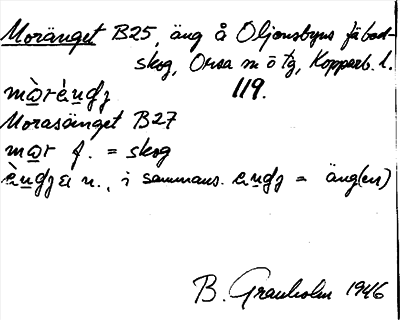 Moränget B25, äng å Oljonsbyns fäbod-
skog, Orsa s n ö tg, Kopparb. l.
119.
Morasänget B27
f. = skog
n., i sammans. = äng(en)
B. Granholm 1946